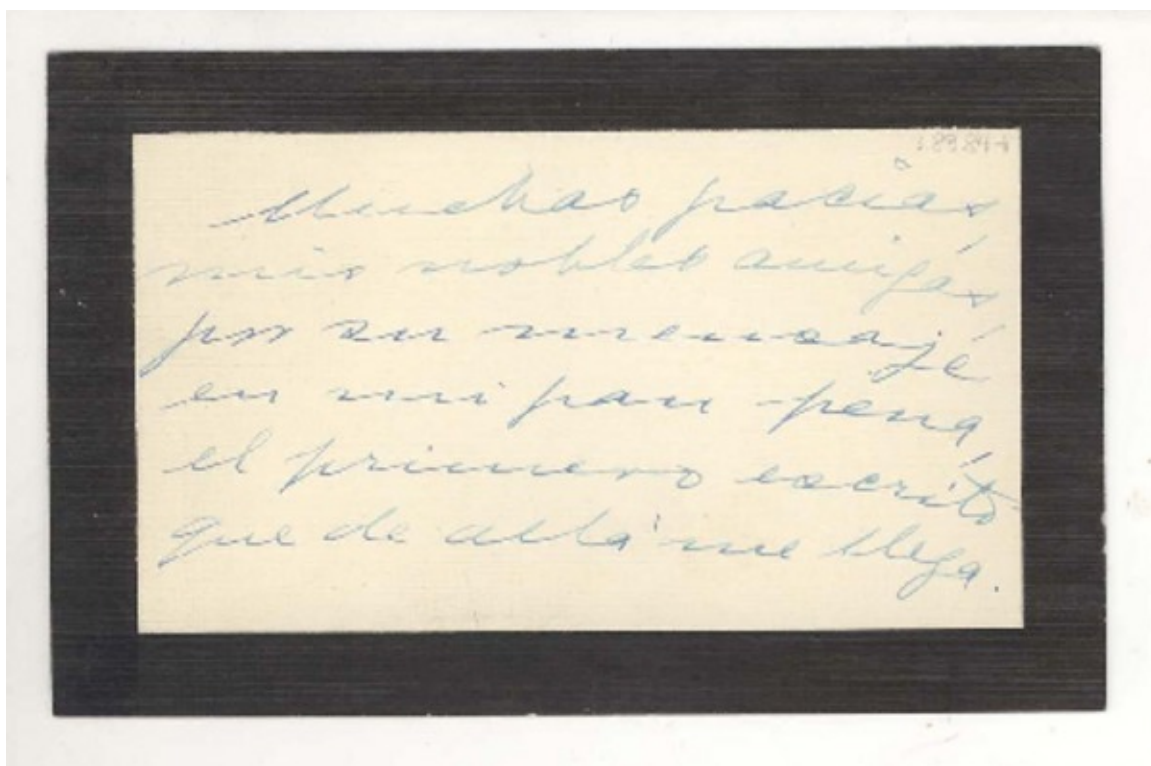 Muchas gracias
mis nobles amigas
por su mensaje
en mi gran pena,
el primero escrito
que de allá me llega.